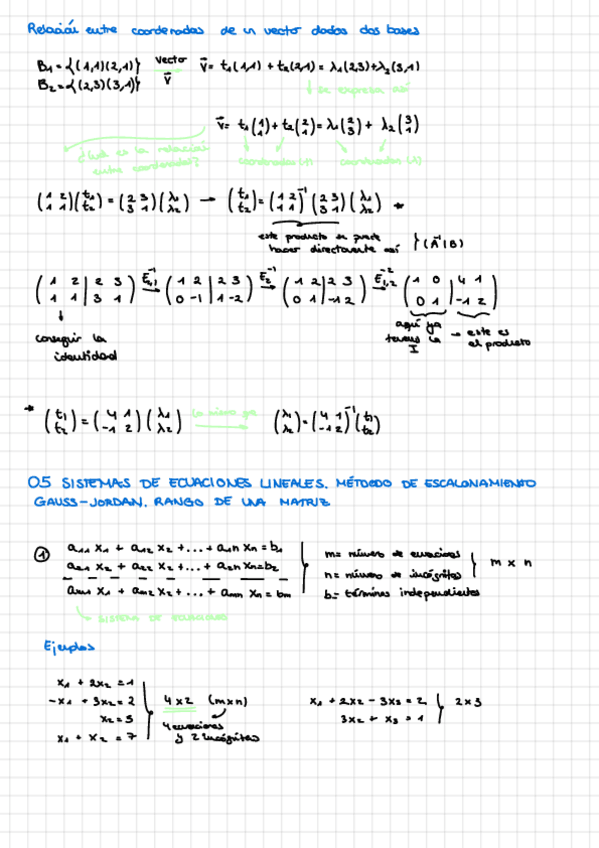 Relación entre coordenadas de un vector dados dos bases
B₁ = {(1,1)(2,1)} vector v⃗ = t₁(1,1) + t₂(2,1) = λ₁(2,3)+λ₂(3,1)
B₂ = {(2,3)(3,1)} v⃗
↓ se expresa así
v⃗ = t₁(1 1) + t₂(2 1) = λ₁(2 3) + λ₂(3 1)
¿Cuál es la relación entre coordenadas? coordenadas (t) coordenadas (λ)
(1 2 / 1 1)(t₁ / t₂) = (2 3 / 3 1)(λ₁ / λ₂) → (t₁ / t₂) = (1 2 / 1 1)⁻¹ (2 3 / 3 1)(λ₁ / λ₂) *
este producto se puede hacer directamente así } (A⁻¹|B)
(1 2 | 2 3 / 1 1 | 3 1) E₂,₁⁻¹ → (1 2 | 2 3 / 0 -1 | 1 -2) E₂⁻¹ → (1 2 | 2 3 / 0 1 | -1 2) E₁,₂⁻² → (1 0 | 4 1 / 0 1 | -1 2)
↓
conseguir la identidad
aquí ya tenemos la I → este es el producto
* (t₁ / t₂) = (4 1 / -1 2)(λ₁ / λ₂) lo mismo ya → (λ₁ / λ₂) = (4 1 / -1 2)⁻¹ (t₁ / t₂)
05 SISTEMAS DE ECUACIONES LINEALES. MÉTOEDO DE ESCALONAMIENTO
GAUSS-JORDAN. RANGO DE UNA MATRIZ
① a₁₁ x₁ + a₁₂ x₂ + ... + a₁n xn = b₁
a₂₁ x₁ + a₂₂ x₂ + ... + a₂n xn = b₂
am₁ x₁ + am₂ x₂ + ... + amn xn = bm
m = número de ecuaciones
n = número de incógnitas
} m x n
b = términos independientes
↳ SISTEMA DE ECUACIONES
Ejemplos
x₁ + 2x₂ = 1
-x₁ + 3x₂ = 2
x₂ = 5
x₁ + x₂ = 7
4x2 (mxn)
4 ecuaciones
y 2 incógnitas
x₁ + 2x₂ - 3x₃ = 2
3x₂ + x₃ = 1
2x3